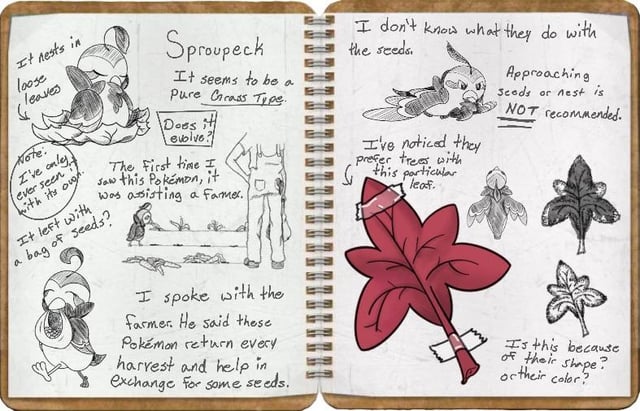 It nests in
loose
leaves
Sproupeck
It seems to be a
pure Grass Type.
Does it
evolve?
Note:
I've only
ever seen it
with its own.
The first time I
saw this Pokémon, it
was assisting a farmer.
It left with
a bag of seeds?
I spoke with the
farmer. He said these
Pokémon return every
harvest and help in
exchange for some seeds.
I don't know what they do with
the seeds.
Approaching
seeds or nest is
NOT recommended.
I've noticed they
prefer trees with
this particular
leaf.
Is this because
of their shape?
or their color?